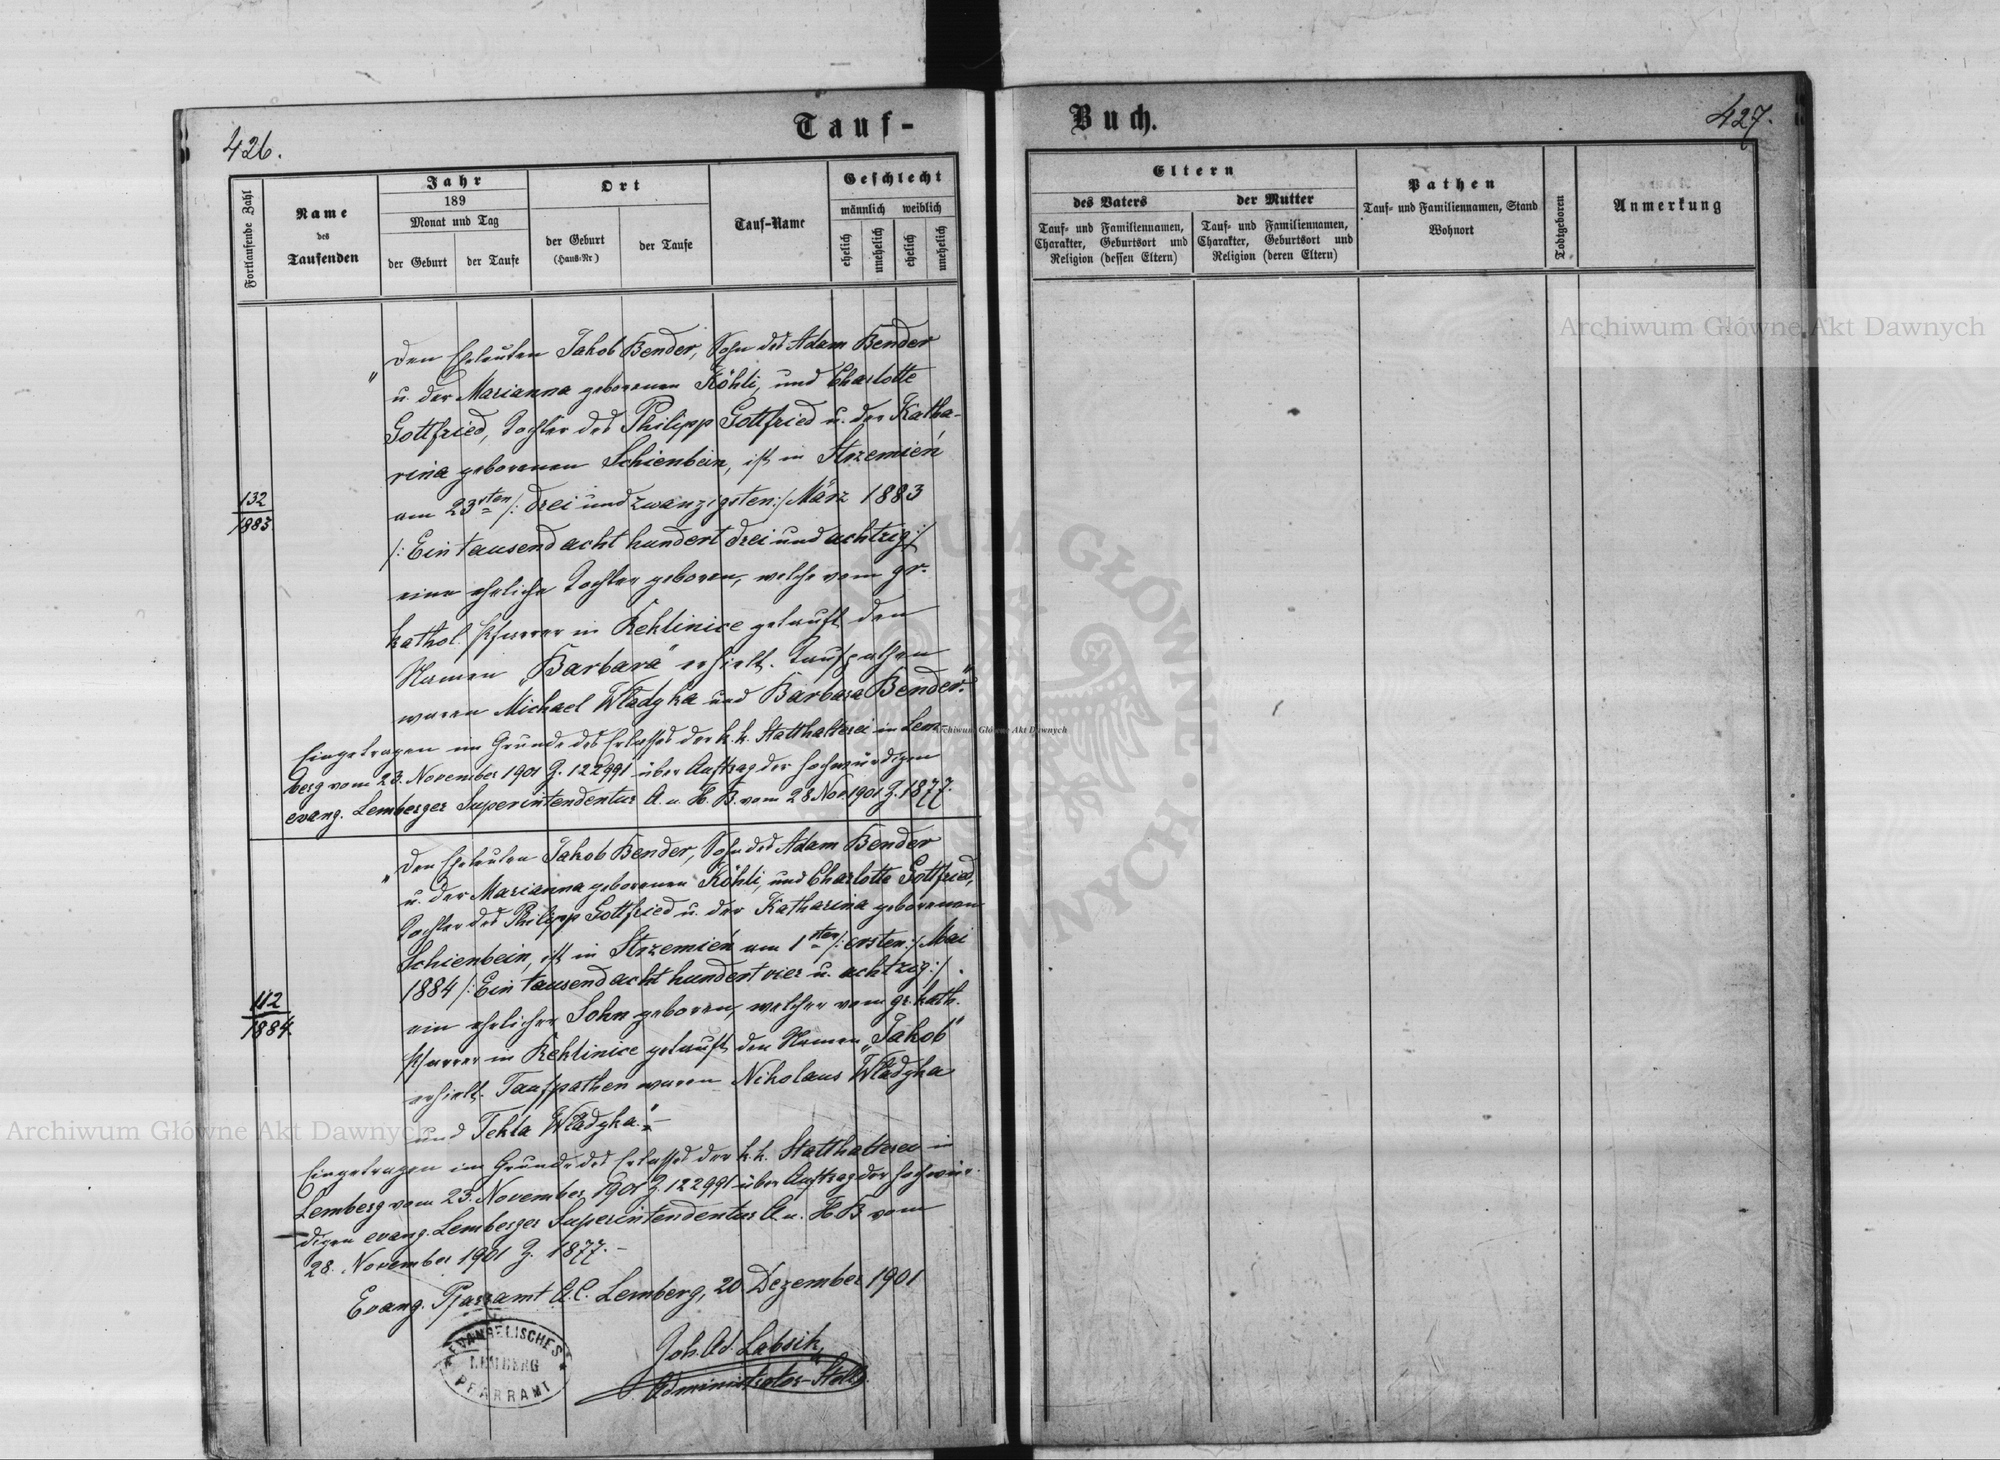 426.
Tauf-
Fortlaufende Zahl
Name
des
Taufenden
Jahr
189
Monat und Tag
der Geburt
der Taufe
Ort
der Geburt
(Haus-Nr.)
der Taufe
Tauf-Name
Geschlecht
männlich weiblich
ehelich
unehelich
ehelich
unehelich
132
1883
„Den Eheleuten Jakob Bender, Sohn des Adam Bender
u. der Marianna geborenen Köhli, und Charlotte
Gottfried, Tochter des Philipp Gottfried u. der Katha-
rina geborenen Schienbein, ist in Strzemień
am 23sten /: drei und zwanzigsten :/ März 1883
/: Ein tausend acht hundert drei und achtzig :/
eine eheliche Tochter geboren, welche vom gr.
kathol. Pfarrer in Reklinice getauft den
Namen „Barbara" erhielt. Taufpathen
waren Michael Władyka und Barbara Bender."
Eingetragen im Grunde des Erlasses der k. k. Statthalterei in Lem-
berg vom 23. November 1901 Z. 122991 über Auftrag der hochwürdigen
evang. Lemberger Superintendentur A. u. H. B. vom 28 Nov 1901 Z. 1877.
112
1884
„Den Eheleuten Jakob Bender, Sohn des Adam Bender
u. der Marianna geborenen Köhli, und Charlotte Gottfried,
Tochter des Philipp Gottfried u. der Katharina geborenen
Schienbein, ist in Strzemień am 1sten /: ersten :/ Mai
1884 /: Ein tausend acht hundert vier u. achtzig :/
ein ehelicher Sohn geboren, welcher vom gr. kath.
Pfarrer in Reklinice getauft den Namen „Jakob"
erhielt. Taufpathen waren Nikolaus Władyka
und Tekla Władyka." –
Eingetragen im Grunde des Erlasses der k. k. Statthalterei in
Lemberg vom 23. November 1901 Z. 122991 über Auftrag der hochwür-
digen evang. Lemberger Superintendentur A. u. H. B. vom
28. November 1901 Z. 1877. –
Evang. Pfarramt A. C. Lemberg, 20 Dezember 1901
EVANGELISCHES
LEMBERG
PFARRAMT
Joh. Ad. Labsik,
Administrator-Stellv.
Buch.
427.
Eltern
des Vaters
Tauf- und Familiennamen,
Charakter, Geburtsort und
Religion (dessen Eltern)
der Mutter
Tauf- und Familiennamen,
Charakter, Geburtsort und
Religion (deren Eltern)
Pathen
Tauf- und Familiennamen, Stand
Wohnort
Todtgeboren
Anmerkung
Archiwum Główne Akt Dawnych
Archiwum Główne Akt Dawnych
Archiwum Główne Akt Dawnych